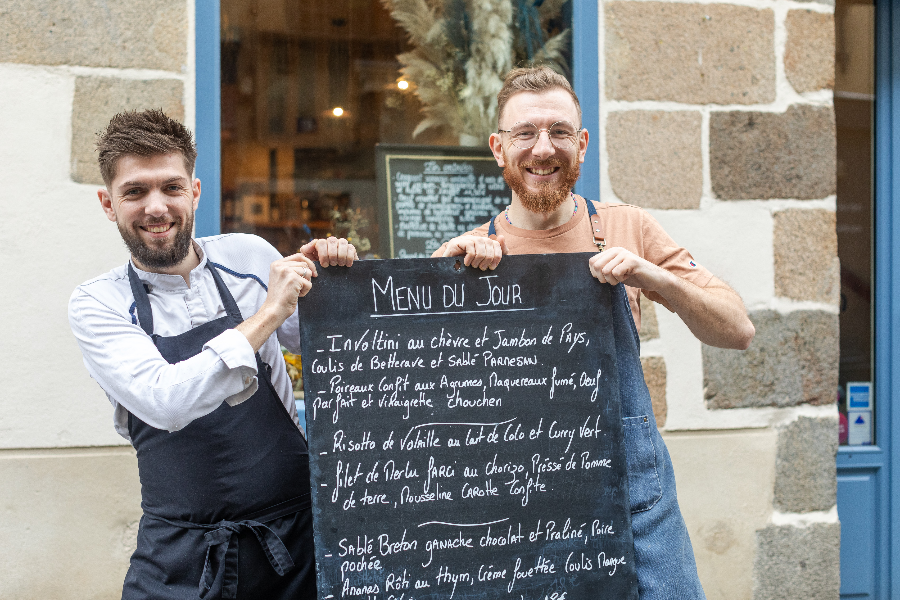 MENU DU JOUR
- Involtini au chèvre et Jambon de Pays,
Coulis de Betterave et Sablé Parmesan.
- Poireaux Confit aux Agrumes, Maquereaux fumé, Oeuf
Parfait et Vinaigrette Chouchen
- Risotto de Volaille au lait de Coco et Curry Vert
- filet de Merlu farci au chorizo, Pressé de Pomme
de terre, Mousseline Carotte Confite.
- Sablé Breton ganache chocolat et Praliné, Poire
pochée
- Ananas Rôti au thym, Crème fouettée Coulis Mangue